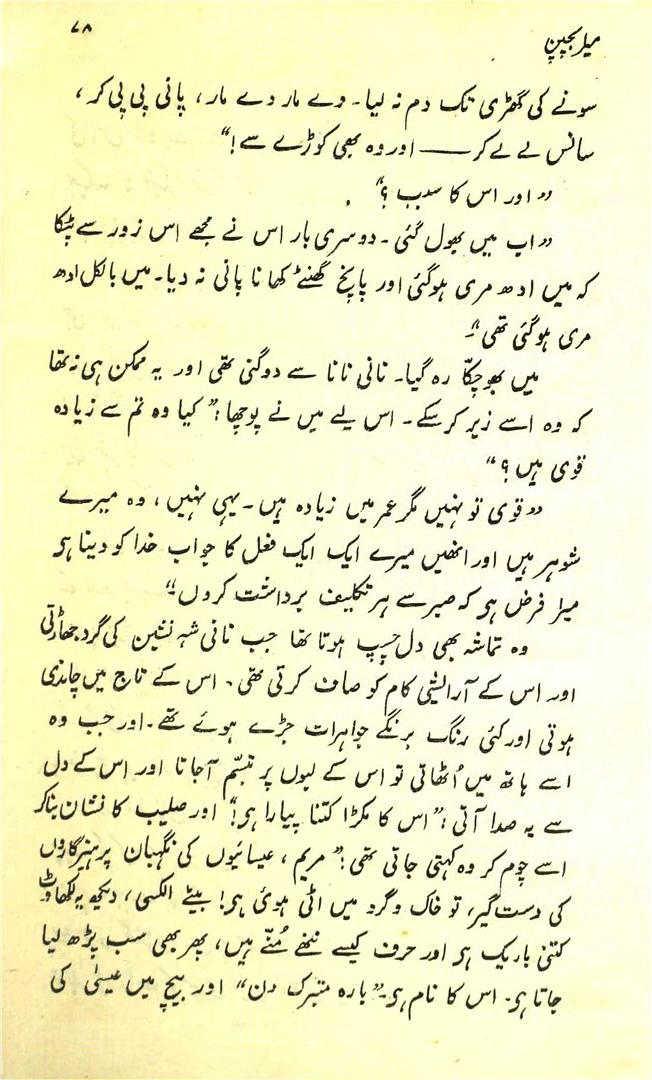 میرا بچپن
۷۸
سونے کی گھڑی تک دم نہ لیا۔ دے مار دے مار، پانی پی پی کر،
سانس لے لے کر —— اور وہ بھی کوڑے سے!“
”اور اس کا سبب ؟“
”اب میں بھول گئی۔ دوسری بار اس نے مجھے اس زور سے پٹکا
کہ میں ادھ مری ہوگئی اور پانچ گھنٹے کھانا پانی نہ دیا۔ میں بالکل ادھ
مری ہوگئی تھی“۔
میں بھوچکّا رہ گیا۔ نانی نانا سے دوگنی تھی اور یہ ممکن ہی نہ تھا
کہ وہ اسے زیر کر سکے۔ اس لیے میں نے پوچھا:”کیا وہ تم سے زیادہ
قوی ہیں ؟“
”قوی تو نہیں مگر عمر میں زیادہ ہیں۔ یہی نہیں، وہ میرے
شوہر ہیں اور انھیں میرے ایک ایک فعل کا جواب خدا کو دینا ہی
میرا فرض ہی کہ صبر سے ہر تکلیف برداشت کروں“۔
وہ تماشہ بھی دل چسپ ہوتا تھا جب نانی شہ نشین کی گرد جھاڑتی
اور اس کے آرائشی کام کو صاف کرتی تھی۔ اس کے تاج میں چاندی
ہوتی اور کئی رنگ برنگے جواہرات جڑے ہوئے تھے۔ اور جب وہ
اسے ہاتھ میں اُٹھاتی تو اس کے لبوں پر تبسّم آجاتا اور اس کے دل
سے یہ صدا آتی:”اس کا مکڑا کتنا پیارا ہی!“ اور صلیب کا نشان بناکر
اسے چوم کر وہ کہتی جاتی تھی:”مریم، عیسائیوں کی نگہبان پرہیزگاروں
کی دست گیر، تو خاک و گرد میں اٹی ہوئی ہی! بیٹے الکسی، دیکھ یہ لکھاوٹ
کتنی باریک ہی اور حرف کیسے ننھے مُنّے ہیں، پھر بھی سب پڑھ لیا
جاتا ہی۔ اس کا نام ہی۔”بارہ متبرک دن“ اور بیچ میں عیسیٰ کی